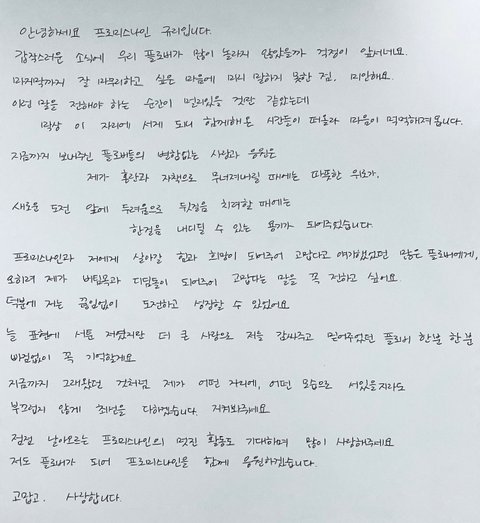 안녕하세요 프로미스나인 규리입니다.
갑작스러운 소식에 우리 플로버가 많이 놀라지 않았을까 걱정이 앞서네요.
마지막까지 잘 마무리하고 싶은 마음에 미리 말하지 못한 점, 미안해요.
이런 말을 전해야 하는 순간이 멀리있을 것만 같았는데
막상 이 자리에 서게 되니 함께해온 시간들이 떠올라 마음이 먹먹해져 옵니다.
지금까지 보내주신 플로버들의 변함없는 사랑과 응원은
제가 혼란과 자책으로 무너져내릴 때에는 따뜻한 위로가,
새로운 도전 앞에 두려움으로 뒷걸음 치려할 때에는
한걸음 내디딜 수 있는 용기가 되어주었습니다.
프로미스나인과 저에게 살아갈 힘과 희망이 되어주어 고맙다고 얘기했었던 많은 플로버에게,
오히려 제가 버팀목과 디딤돌이 되어주어 고맙다는 말을 꼭 전하고 싶어요.
덕분에 저는 끊임없이 도전하고 성장할 수 있었어요
늘 표현에 서툰 저였지만 더 큰 사랑으로 저를 감싸주고 믿어주었던 플로버 한분 한분
빠짐없이 꼭 기억할게요
지금까지 그래왔던 것처럼 제가 어떤 자리에, 어떤 모습으로 서있을지라도
부끄럽지 않게 최선을 다하겠습니다. 지켜봐주세요
점점 날아오르는 프로미스나인의 멋진 활동도 기대하며 많이 사랑해주세요
저도 플로버가 되어 프로미스나인을 함께 응원하겠습니다.
고맙고, 사랑합니다.